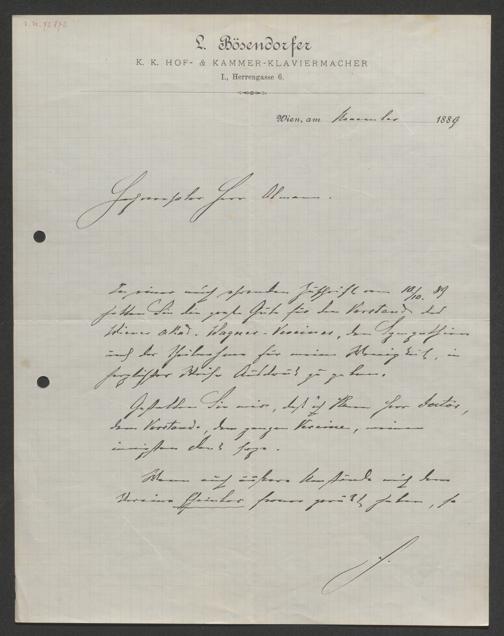 L. Bösendorfer
K. K. HOF- & KAMMER-KLAVIERMACHER
I., Herrengasse 6.
Wien, am November 1889
Herr Obmann.
In einer mich ehrenden Zuschrift vom 18/10. 89
hatten Sie die große Güte für den Vorstand des
Wiener akad. Wagner-Vereines, den Sympathien
und der Theilnahme für meine Wenigkeit, in
herzlichster Weise Ausdruck zu geben.
Gestatten Sie mir, daß ich Ihnen Herr Doctor,
dem Vorstande, dem ganzen Vereine, meinen
innigsten Dank sage.
Wenn auch äußere Umstände mich dem
Vereine ferner gerückt haben, so